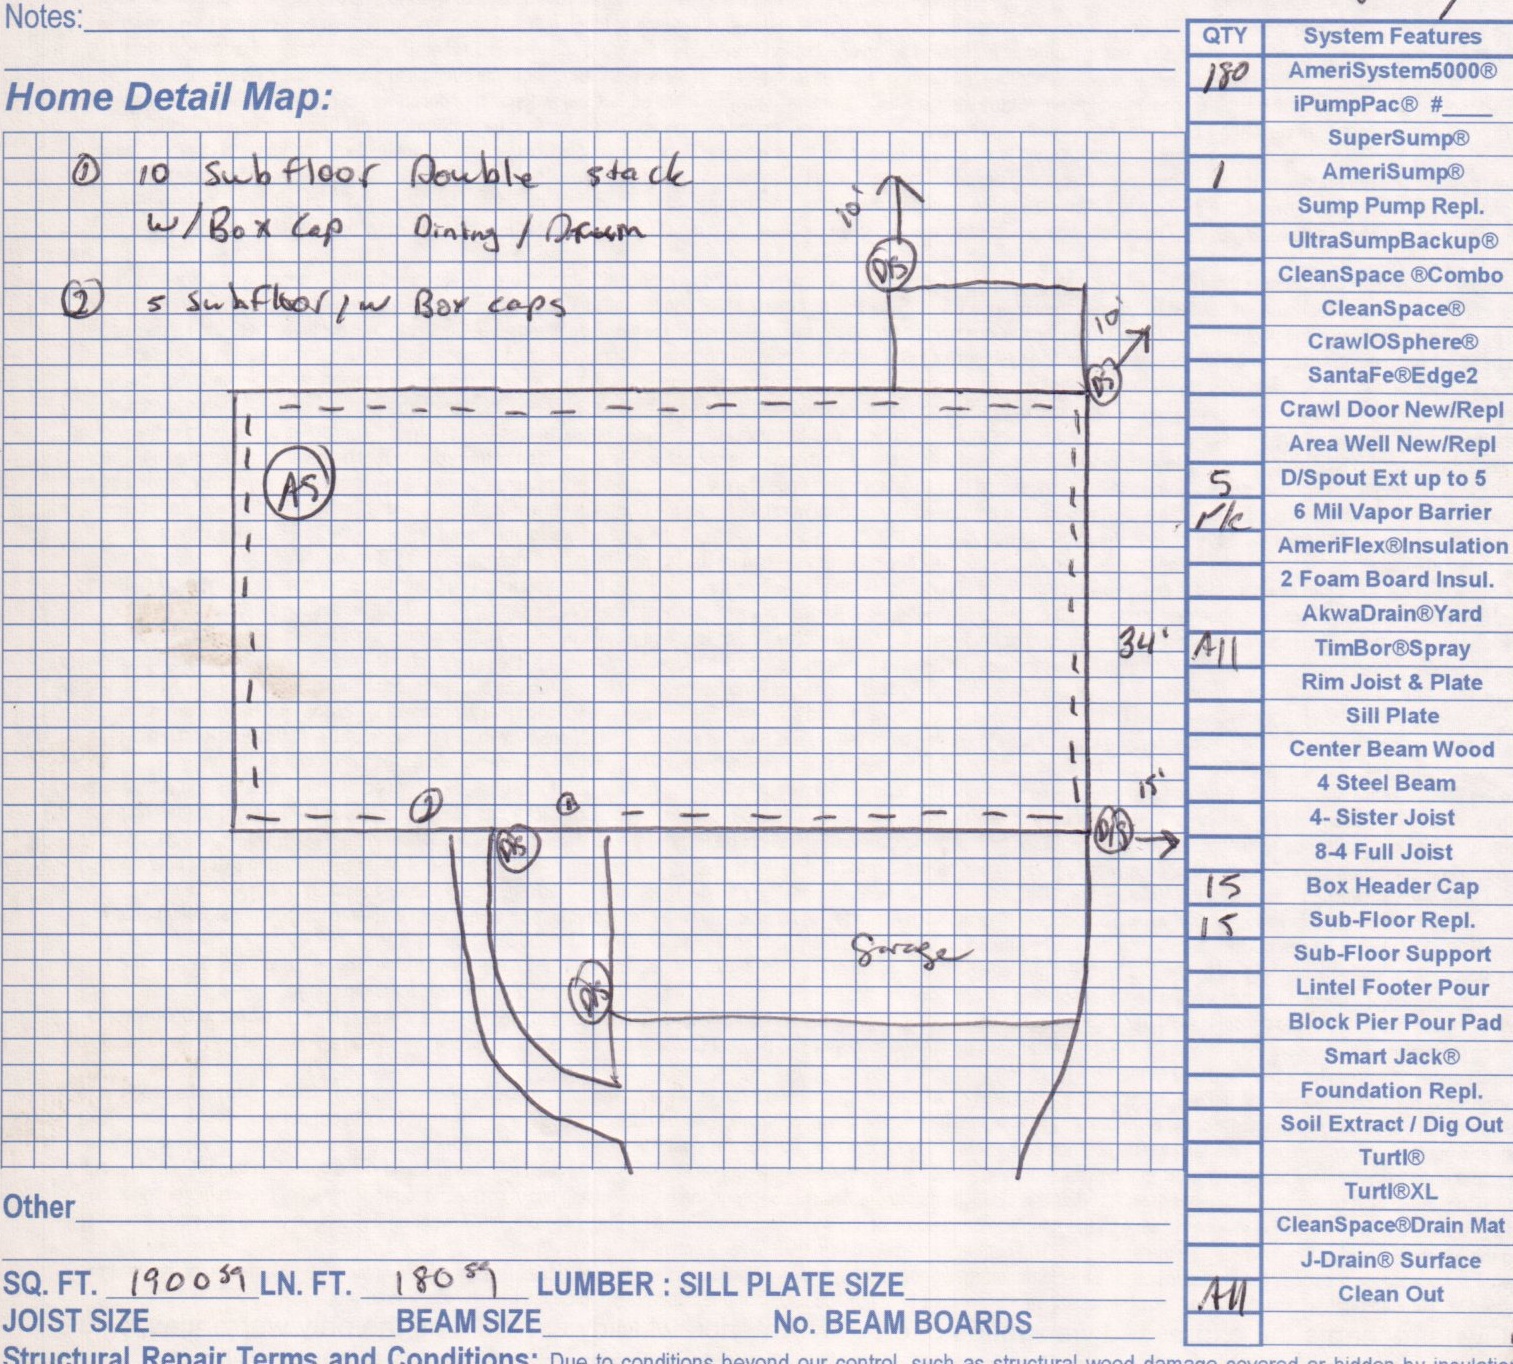 Notes:
Home Detail Map:
① 10 Subfloor Double stack
w/Box Cap Dining /
② 5 Subfloor/w Box caps
10'
D/S
10'
DS
AS
34'
15'
② ①
D/S
D/S
D/S
Garage
QTY System Features
180 AmeriSystem5000®
iPumpPac® #____
SuperSump®
1 AmeriSump®
Sump Pump Repl.
UltraSumpBackup®
CleanSpace ®Combo
CleanSpace®
CrawlOSphere®
SantaFe®Edge2
Crawl Door New/Repl
Area Well New/Repl
5 D/Spout Ext up to 5
6 Mil Vapor Barrier
AmeriFlex®Insulation
2 Foam Board Insul.
AkwaDrain®Yard
All TimBor®Spray
Rim Joist & Plate
Sill Plate
Center Beam Wood
4 Steel Beam
4- Sister Joist
8-4 Full Joist
15 Box Header Cap
15 Sub-Floor Repl.
Sub-Floor Support
Lintel Footer Pour
Block Pier Pour Pad
Smart Jack®
Foundation Repl.
Soil Extract / Dig Out
Turtl®
Turtl®XL
CleanSpace®Drain Mat
J-Drain® Surface
All Clean Out
Other
SQ. FT. 1900 sq LN. FT. 180 sq LUMBER : SILL PLATE SIZE
JOIST SIZE BEAM SIZE No. BEAM BOARDS
Structural Repair Terms and Conditions: Due to conditions beyond our control, such as structural wood damage covered or hidden by insulation